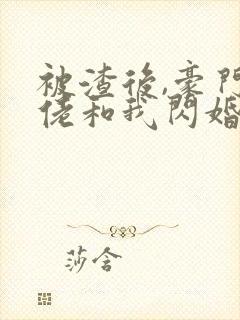 被渣後,豪門
佬和我閃婚
莎含